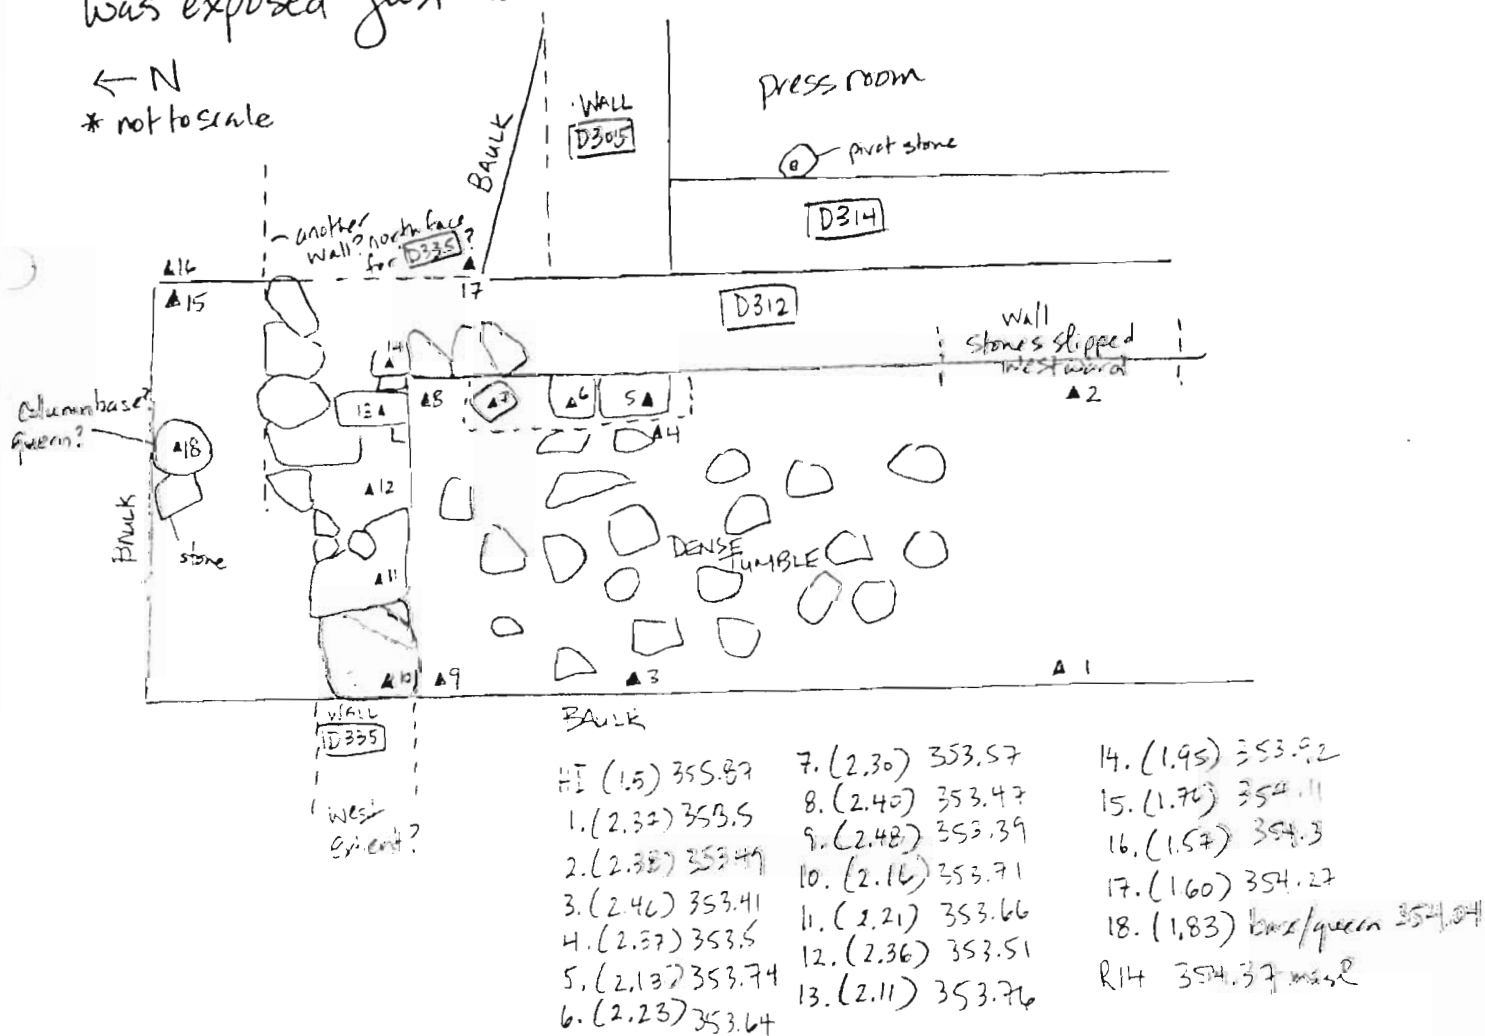 was exposed just
← N
* not to scale
press room
WALL
D305
BAULK
pivot stone
D314
another
wall? north face
for D335?
▲16
▲15
17
D312
Wall
stones slipped
westward
▲2
14
13▲
▲8
▲7
▲6
5▲
▲4
column base?
quern?
▲18
▲12
stone
BAULK
DENSE
TUMBLE
▲11
▲10
▲9
▲3
▲ 1
WALL
D335
west
extent?
BAULK
HI (1.5) 355.87
1. (2.37) 353.5
2. (2.38) 353.49
3. (2.46) 353.41
4. (2.37) 353.5
5. (2.13) 353.74
6. (2.23) 353.64
7. (2.30) 353.57
8. (2.40) 353.47
9. (2.48) 353.39
10. (2.16) 353.71
11. (2.21) 353.66
12. (2.36) 353.51
13. (2.11) 353.76
14. (1.95) 353.92
15. (1.76) 354.11
16. (1.57) 354.3
17. (1.60) 354.27
18. (1.83) base/quern 354.04
R14 354.37 masl